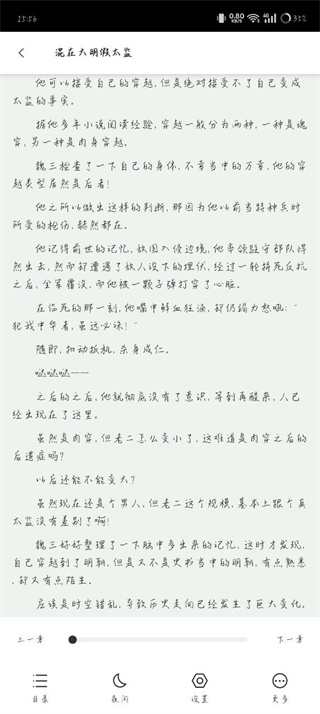 15:56
0.80 KB/s
31%
混在大明假太监
他可以接受自己的穿越,但是绝对接受不了自己变成
太监的事实。
据他多年小说阅读经验,穿越一般分为两种,一种是魂
穿,另一种是肉身穿越。
魏三检查了一下自己的身体,不幸当中的万幸,他的穿
越类型居然是后者!
他之所以做出这样的判断,那因为他以前当特种兵时
所受的枪伤,赫然都在。
他记得前世的记忆,敌国入侵边境,他率领驻守部队悍
然出击,然而却遭遇了敌人设下的埋伏,经过一轮殊死反抗
之后,全军覆没,而他被一颗子弹打穿了心脏。
在临死的那一刻,他嘴中鲜血狂涌,却仍竭力怒吼:“
犯我中华者,虽远必诛!”
随即,扣动扳机,杀身成仁。
哒哒哒——
之后的之后,他就彻底没有了意识,等到再醒来,人已
经出现在了这里。
虽然是肉穿,但老二怎么变小了,这难道是肉穿之后的
后遗症吗?
以后还能不能变大?
虽然现在还是个男人,但老二这个规模,基本上跟个真
太监没有差别了啊!
魏三好好整理了一下脑中多出来的记忆,这时才发现,
自己穿越到了明朝,但是又不是史书当中的明朝,有点熟悉
,却又有点陌生。
应该是时空错乱,导致历史走向已经发生了巨大变化。
上一章
下一章
目录
夜间
设置
更多